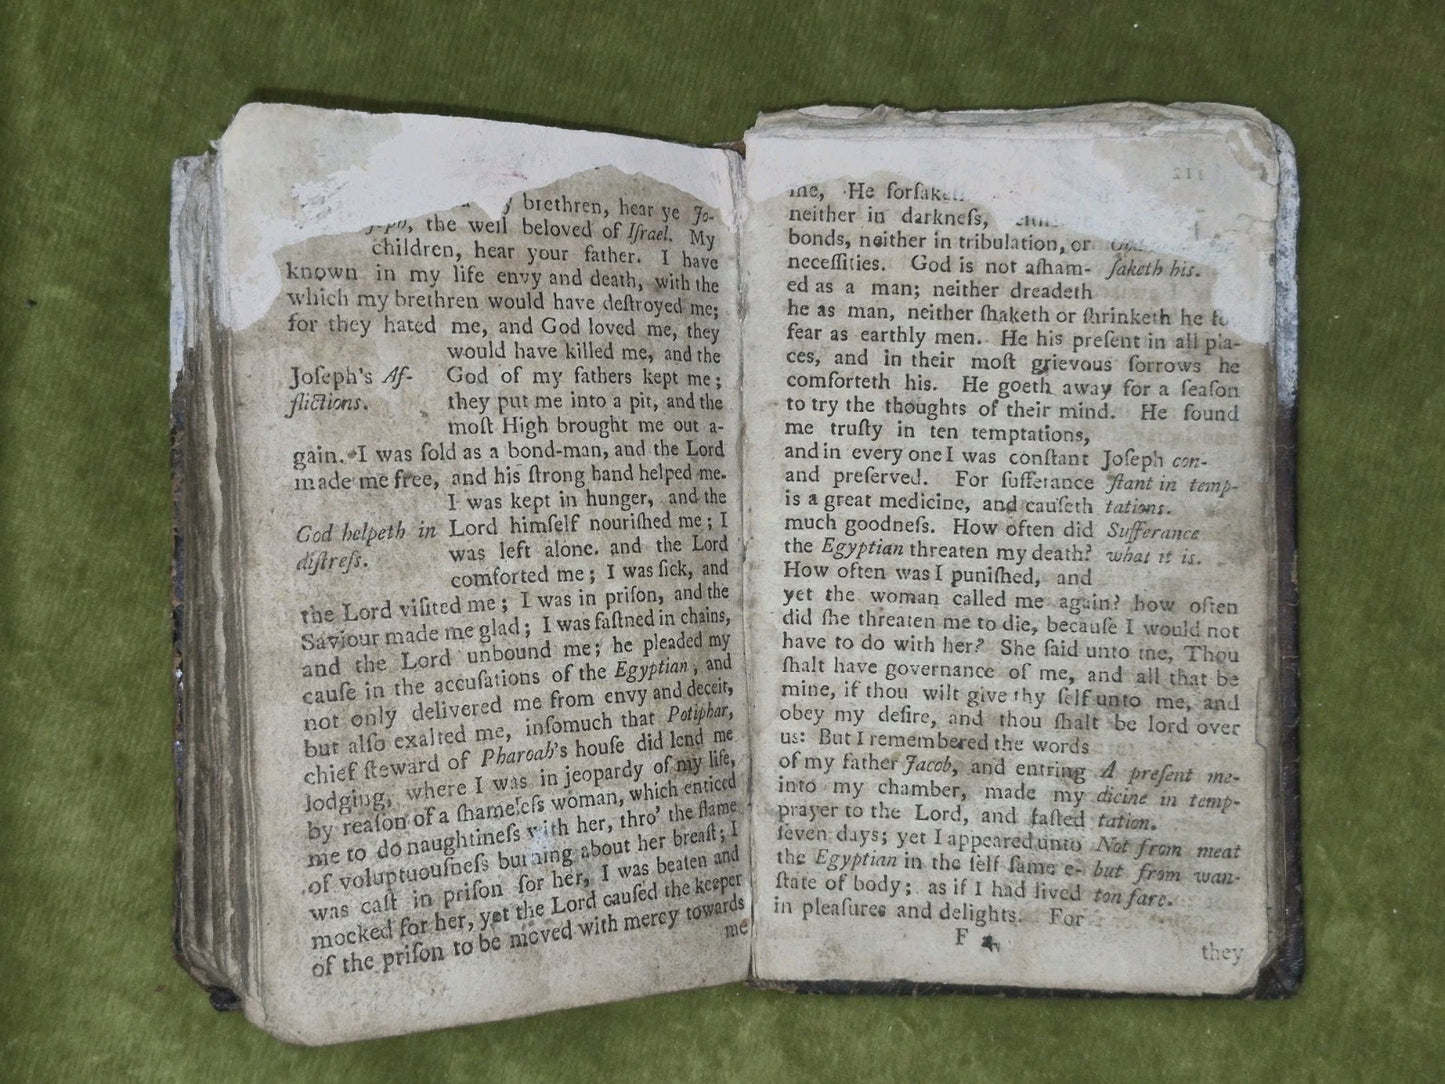 brethren, hear ye Jo-
, the well beloved of Iſrael. My
children, hear your father. I have
known in my life envy and death, with the
which my brethren would have deſtroyed me;
for they hated me, and God loved me, they
would have killed me, and the
Joſeph's Af- God of my fathers kept me;
flictions. they put me into a pit, and the
moſt High brought me out a-
gain. I was ſold as a bond-man, and the Lord
made me free, and his ſtrong hand helped me.
I was kept in hunger, and the
God helpeth in Lord himſelf nouriſhed me; I
diſtreſs. was left alone. and the Lord
comforted me; I was ſick, and
the Lord viſited me; I was in priſon, and the
Saviour made me glad; I was faſtned in chains,
and the Lord unbound me; he pleaded my
cauſe in the accuſations of the Egyptian, and
not only delivered me from envy and deceit,
but alſo exalted me, inſomuch that Potiphar,
chief ſteward of Pharoah's houſe did lend me
lodging, where I was in jeopardy of my life,
by reaſon of a ſhameleſs woman, which enticed
me to do naughtineſs with her, thro' the flame
of voluptuouſneſs burning about her breaſt; I
was caſt in priſon for her, I was beaten and
mocked for her, yet the Lord cauſed the keeper
of the priſon to be moved with mercy towards
me
112
me, He
neither in darkneſs,
bonds, neither in tribulation, or
neceſſities. God is not aſham- ſaketh his.
ed as a man; neither dreadeth
he as man, neither ſhaketh or ſhrinketh he
fear as earthly men. He his preſent in all pla-
ces, and in their moſt grievous ſorrows he
comforteth his. He goeth away for a ſeaſon
to try the thoughts of their mind. He found
me truſty in ten temptations,
and in every one I was conſtant Joſeph con-
and preſerved. For ſufferance ſtant in temp-
is a great medicine, and cauſeth tations.
much goodneſs. How often did Sufferance
the Egyptian threaten my death? what it is.
How often was I puniſhed, and
yet the woman called me again? how often
did ſhe threaten me to die, becauſe I would not
have to do with her? She ſaid unto me, Thou
ſhalt have governance of me, and all that be
mine, if thou wilt give thy ſelf unto me, and
obey my deſire, and thou ſhalt be lord over
us: But I remembered the words
of my father Jacob, and entring A preſent me-
into my chamber, made my dicine in temp-
prayer to the Lord, and faſted tation.
ſeven days; yet I appeared unto Not from meat
the Egyptian in the ſelf ſame e- but from wan-
ſtate of body; as if I had lived ton fare.
in pleaſures and delights. For
F
they